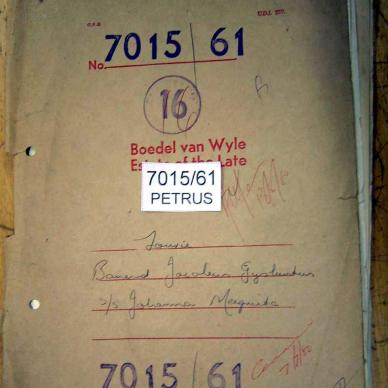 U.D.J. 277.
No. 7015/61
16
Boedel van Wyle
Estate of the Late
7015/61
PETRUS
Fourie
Barend Jacobus Gysbertus
s/s Johanna
7015/61